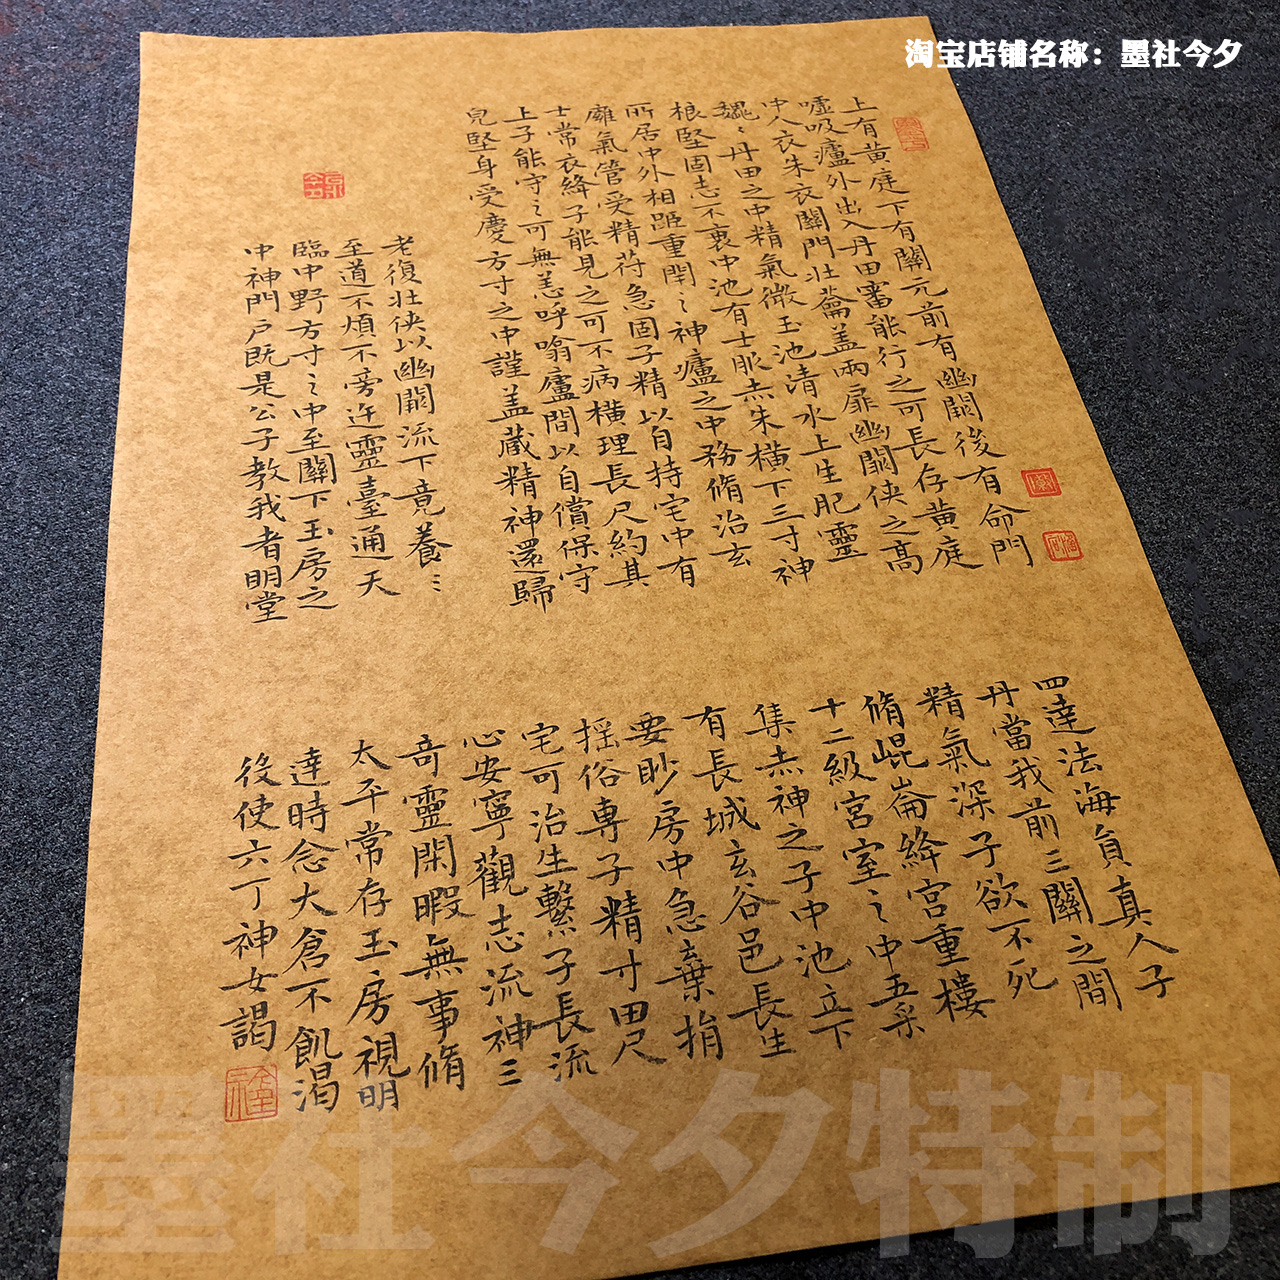 淘宝店铺名称：墨社今夕
上有黄庭下有關元前有幽闕後有命門
噓吸廬外出入丹田審能行之可長存黄庭
中人衣朱衣關門壯蘥盖兩扉幽闕俠之高
魏〻丹田之中精氣微玉池清水上生肥靈
根堅固志不衰中池有士服赤朱橫下三寸神
所居中外相距重閉之神廬之中務脩治玄
廱氣管受精苻急固子精以自持宅中有
士常衣絳子能見之可不病橫理長尺約其
上子能守之可無恙呼噏廬間以自償保守
皃堅身受慶方寸之中謹盖藏精神還歸
老復壯俠以幽闕流下竟養〻
至道不煩不旁迕靈臺通天
臨中野方寸之中至關下玉房之
中神門戶既是公子教我者明堂
四達法海負真人子
丹當我前三關之間
精氣深子欲不死
脩崐崙絳宮重樓
十二級宮室之中五采
集赤神之子中池立下
有長城玄谷邑長生
要眇房中急棄捐
揺俗専子精寸田尺
宅可治生繫子長流
心安寧觀志流神三
奇靈閑暇無事脩
太平常存玉房視明
達時念大倉不飢渴
後使六丁神女謁
墨社今夕特制